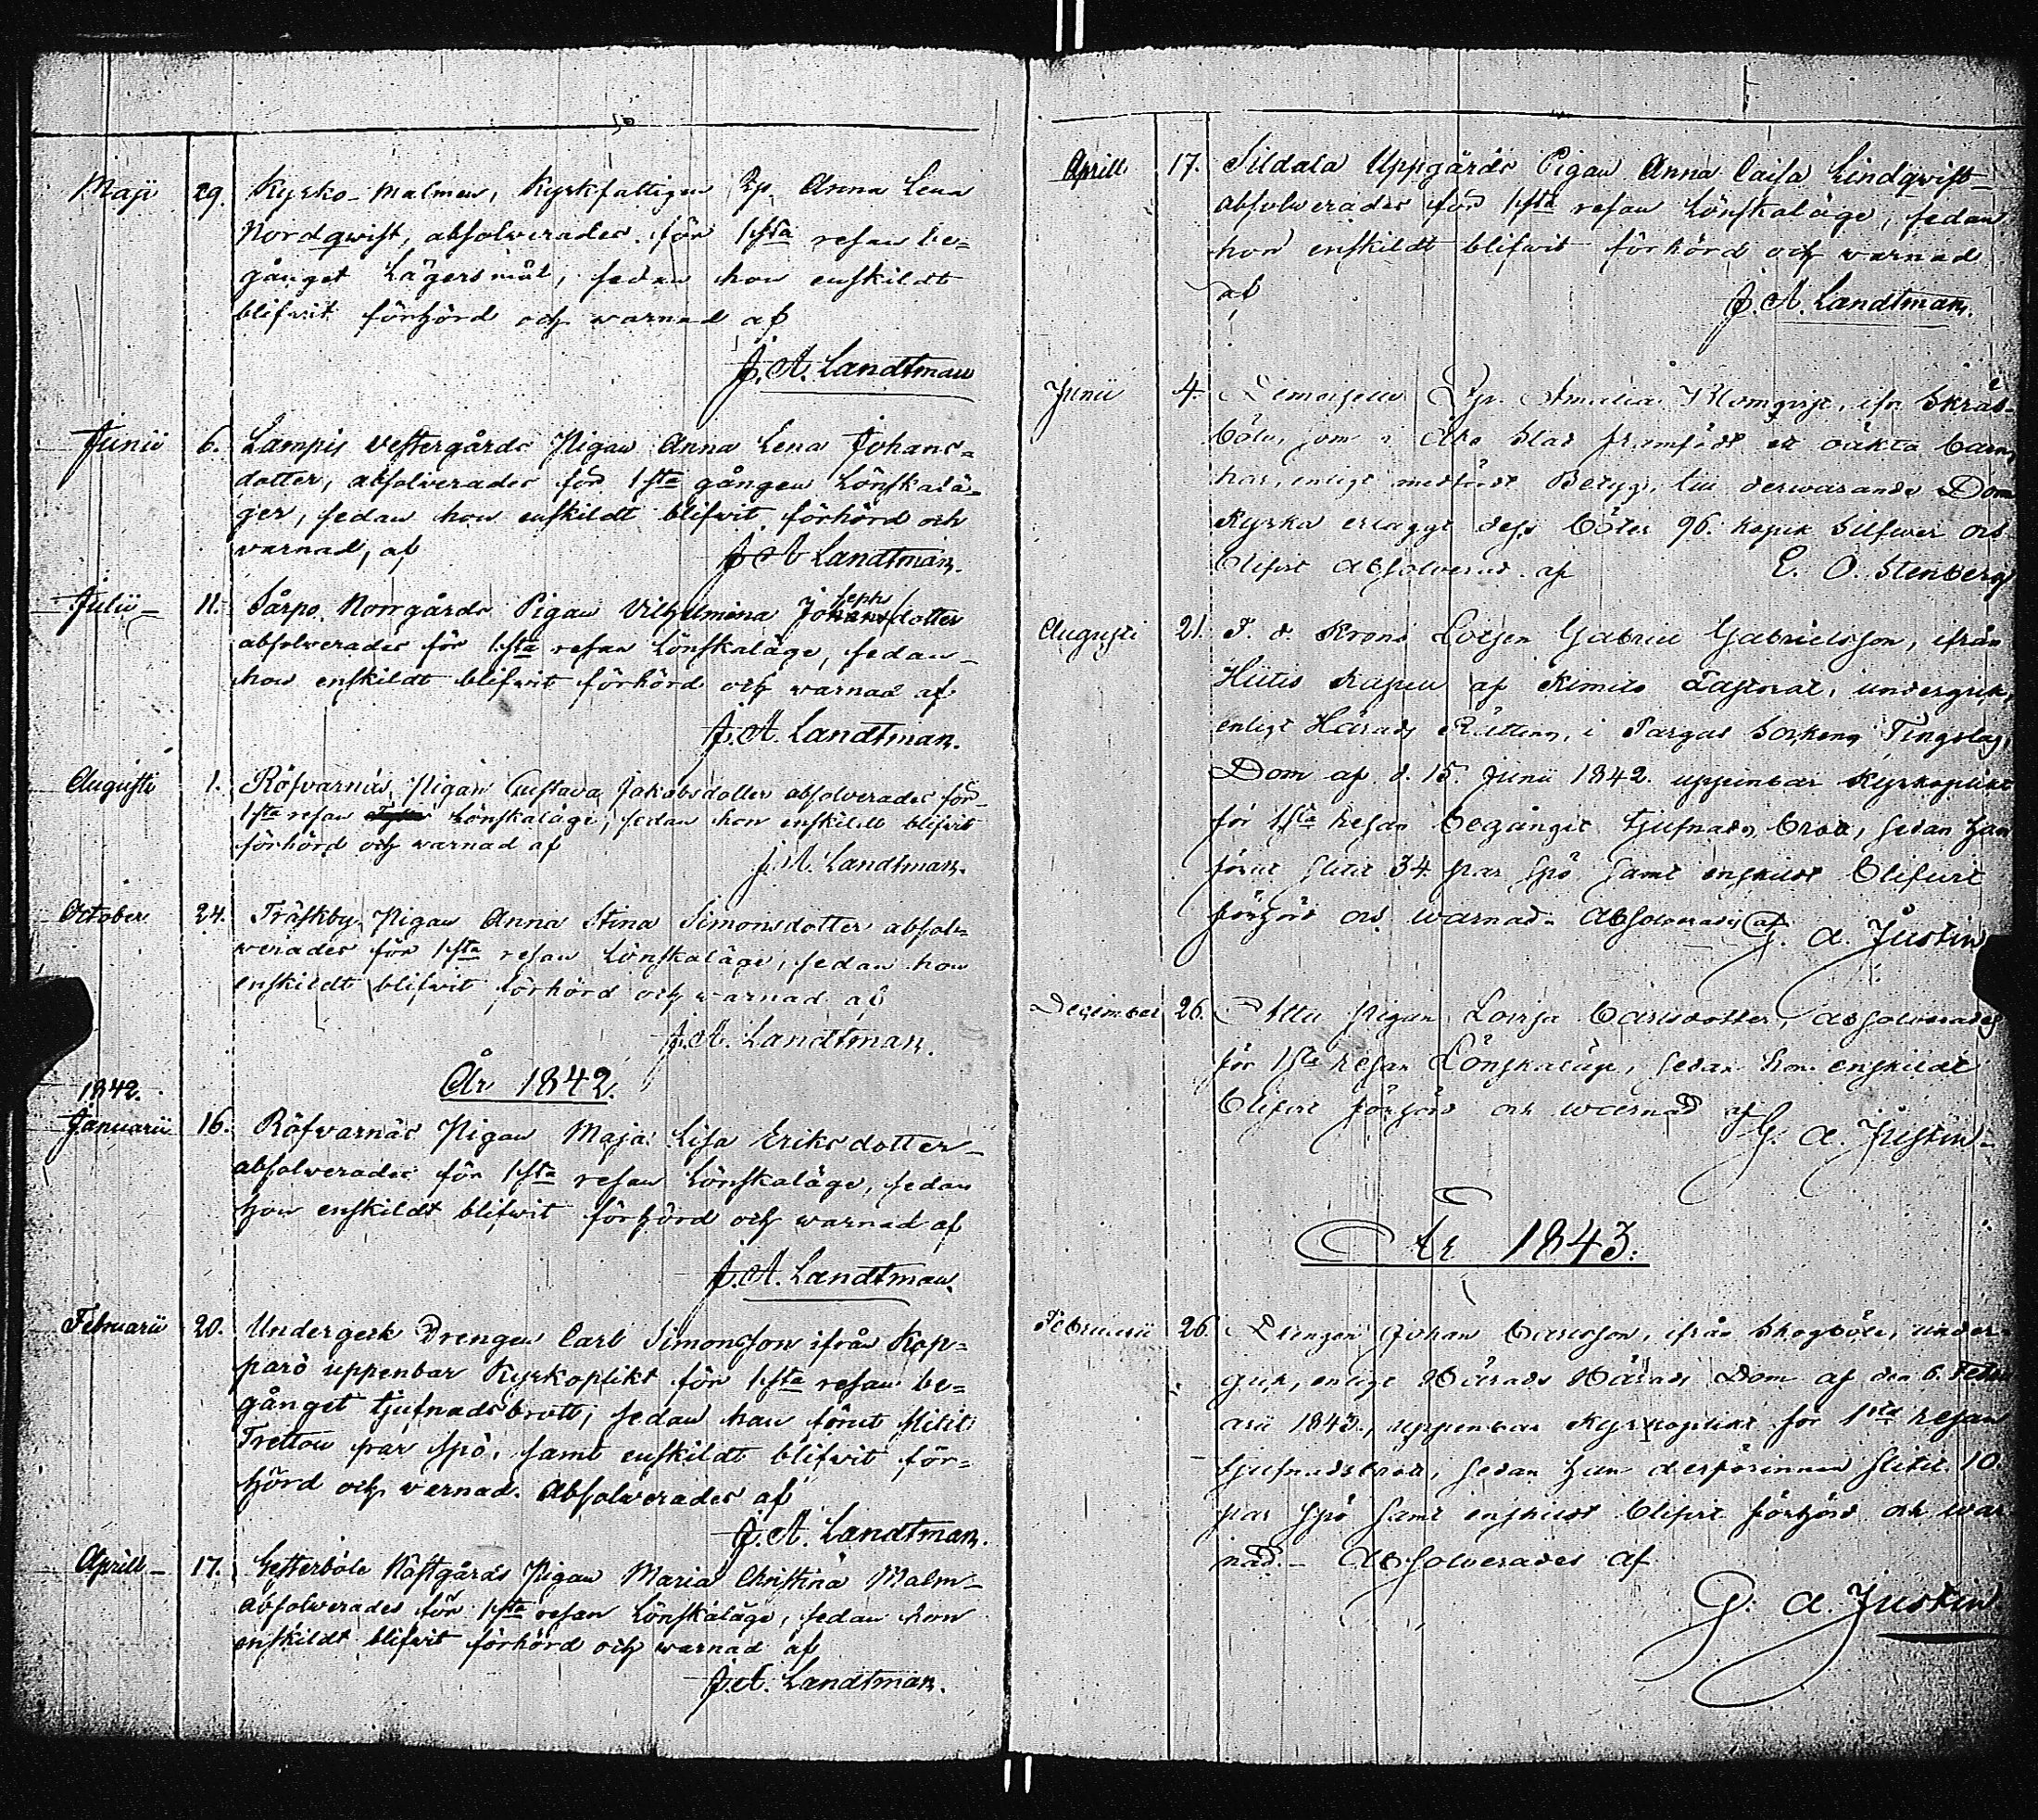 Maji 29. Kyrko-Malmen, Kyrkfattigen Ep. Anna Lena
Nordqwist, absolverades för 1sta resan be=
gånget Lägersmål, sedan hon enskildt
blifwit förhörd och warnad af
J. A. Landtman
Junii 6. Lampis Vestergårds Pigan Anna Lena Johans=
dotter, absolverades för 1sta gången Lönskalä=
ger, sedan hon enskildt blifwit förhörd och
varnad, af J A Landtman.
Julii 11. Sårpo Norrgårds Pigan Vilhelmina Josephsdotter
absolverades för 1sta resan Lönskaläge, sedan
hon enskildt blifwit förhörd och warnad af
J. A. Landtman.
Augusti 1. Röfvarnäs Pigan Gustava Jakobsdotter absolverades för
1sta resan Lönskaläge, sedan hon enskildt blifwit
förhörd och warnad af J. A. Landtman.
October 24. Träskby Pigan Anna Stina Simonsdotter absol=
verades för 1sta resan Lönskaläge, sedan hon
enskildt blifwit förhörd och warnad af
J. A. Landtman.
År 1842.
1842.
Januarii 16. Röfvarnäs Pigan Maja Lisa Eriksdotter
absolverades för 1sta resan Lönskaläge, sedan
hon enskildt blifwit förhörd och warnad af
J. A. Landtman.
Februarii 20. Undergick Drengen Carl Simonsson ifrån Kop=
parö uppenbar Kyrkoplikt för 1sta resan be=
gånget tjufnadsbrott, sedan han förut slitit
Tretton par spö, samt enskildt blifvit för=
hörd och varnad. Absolverades af
J. A. Landtman.
Aprill 17. Gesterböle Västgårds Pigan Maria Christina Malm
absolverades för 1sta resan Lönskaläge, sedan hon
enskildt blifvit förhörd och warnad af
J. A. Landtman.
Aprill 17. Sildala Uppgårds Pigan Anna Caisa Lindqvist
absolverades för 1sta resan Lönskaläge, sedan
hon enskildt blifwit förhörd och warnad
af J. A. Landtman.
Junii 4. Demoiselle Amalia Blomqvist, ifr. Skräb-
böle, som i Åbo Stad framfödt ett oäkta barn,
har, enligt medfördt Betyg, till derwarande Dom
Kyrka erlaggt dess böter 96. kopek Silfwer och
blifvit absolverad af E. O. Stenberg
Augusti 21. F. d. Krono Lotsen Gabriel Gabrielsson, ifrån
Hiitis Kapell af Kimito Pastorat, undergick,
enligt Härads Rättens i Pargas Sockens Tingslag,
Dom af d. 15. Junii 1842. uppenbar Kyrkoplikt
för 1sta resan begånget tjufnads brott, sedan han
förut slitit 34 par spö samt enskildt blifwit
förhörd och warnad. Absolverades af G. A. Justin
December 26. Pigan Lovisa Carlsdotter, absolverades
för 1sta resan Lönskaläge, sedan hon enskildt
blifvit förhörd och warnad af G. A. Justin
År 1843.
Februarii 26. Drengen Johan Carlsson, ifrån Skogböle, under-
gick, enligt Härads Dom af den 6. Febru
arii 1843, uppenbar Kyrkoplikt för 1sta resan
tjufnadsbrott, sedan han derförinnan slitit 10.
par spö samt enskildt blifvit förhörd och war
nad. Absolverades af
G. A. Justin